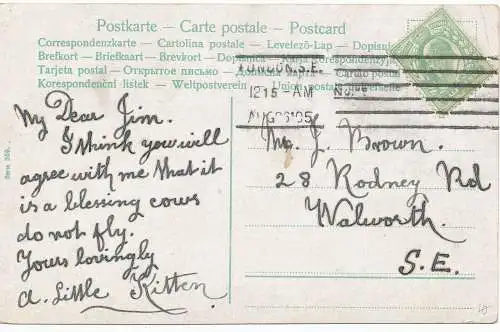 Postkarte – Carte postale – Postcard
Correspondenzkarte – Cartolina postale – Levelező-Lap – Dopisnice
Brefkort – Briefkaart – Brevkort – Dopisnica – Karta korespondencyjna
Tarjeta postal – Открытое письмо – Cartão postal
Korespondenční listek – Weltpostverein – Union postale universelle
LONDON. S.E.
12.15 – AM
AUG 26 05
My Dear Jim.
I think you will
agree with me that it
is a blessing cows
do not fly.
Yours lovingly
A. Little Kitten
Mr. J. Brown.
28 Rodney Rd
Walworth.
S.E.
Serie